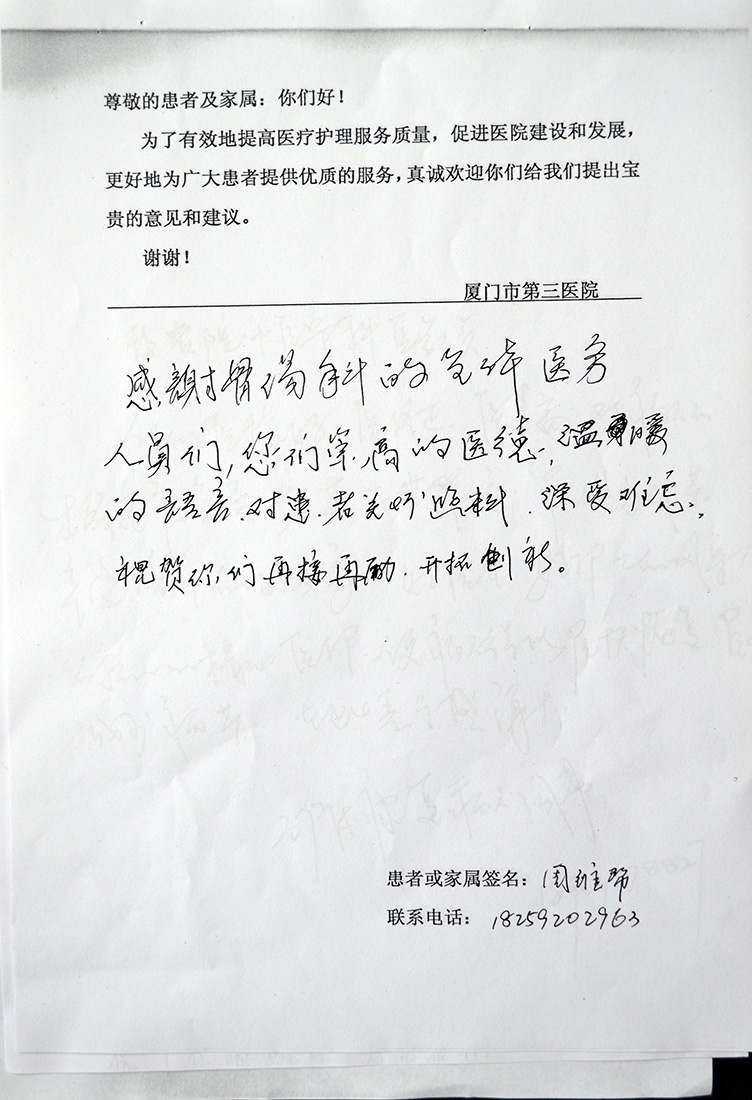 尊敬的患者及家属：你们好！
为了有效地提高医疗护理服务质量，促进医院建设和发展，
更好地为广大患者提供优质的服务，真诚欢迎你们给我们提出宝
贵的意见和建议。
谢谢！
厦门市第三医院
感谢骨伤科的全体医务
人员们，您们崇高的医德，温暖
的语言，对患者关怀照料，深受难忘，
祝赞你们再接再励，开拓创新。
患者或家属签名：周维帮
联系电话：18259202963